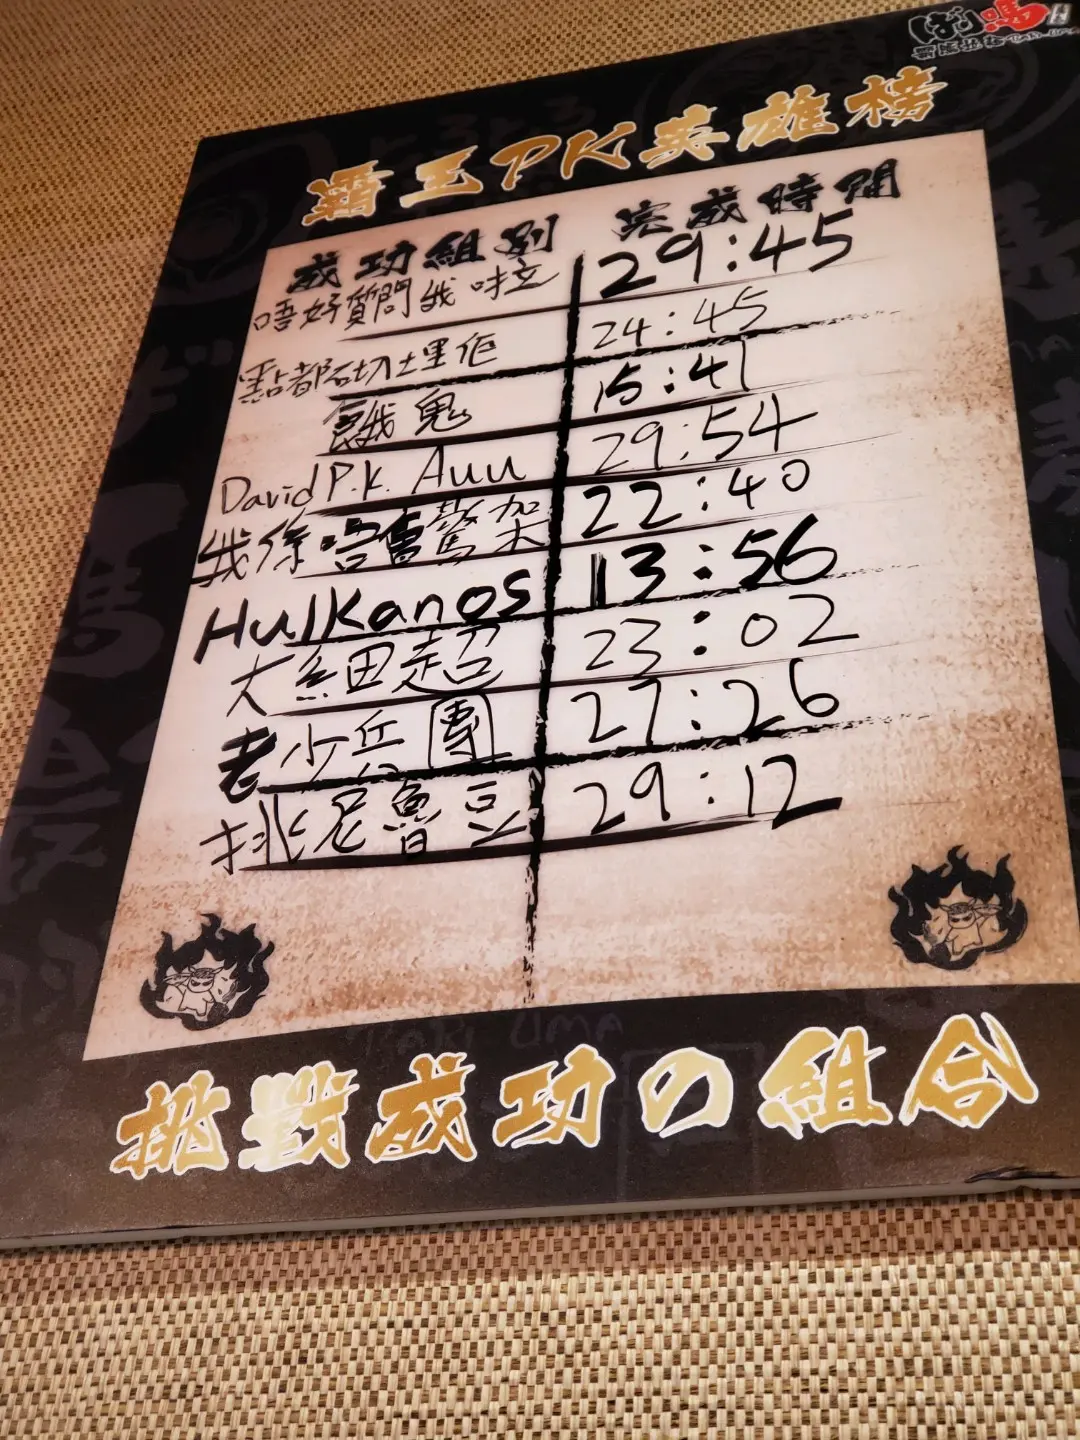 霸王PK英雄榜
成功組別 完成時間
唔好質問我 29:45
24:45
餓鬼 15:41
David P.K. Auu 29:54
我係唔會驚架 22:40
Hulkanos 13:56
大細超 23:02
老少兵團 27:26
29:12
挑戰成功の組合